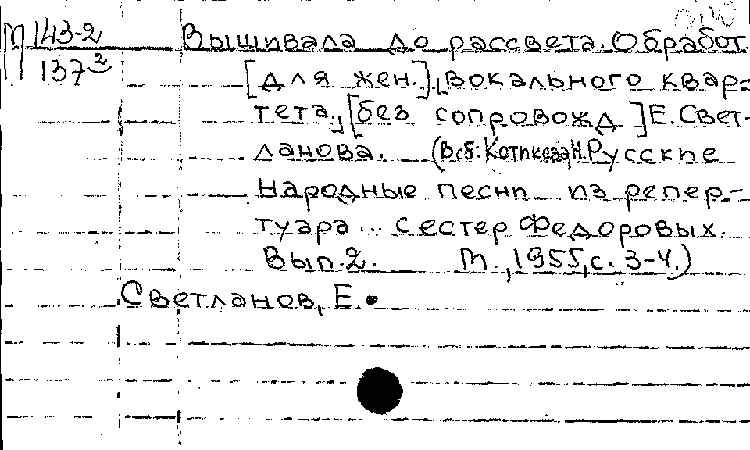 М 143-2 Вышивала до рассвета. Обработ
137² [для жен.] вокального квар-
тета, [без сопровожд] Е. Свет-
ланова. (В сб: Котикова Н. Русские
народные песни из репер-
туара сестер Федоровых.
Вып. 2. М., 1955, с. 3-4.)
Светланов, Е.